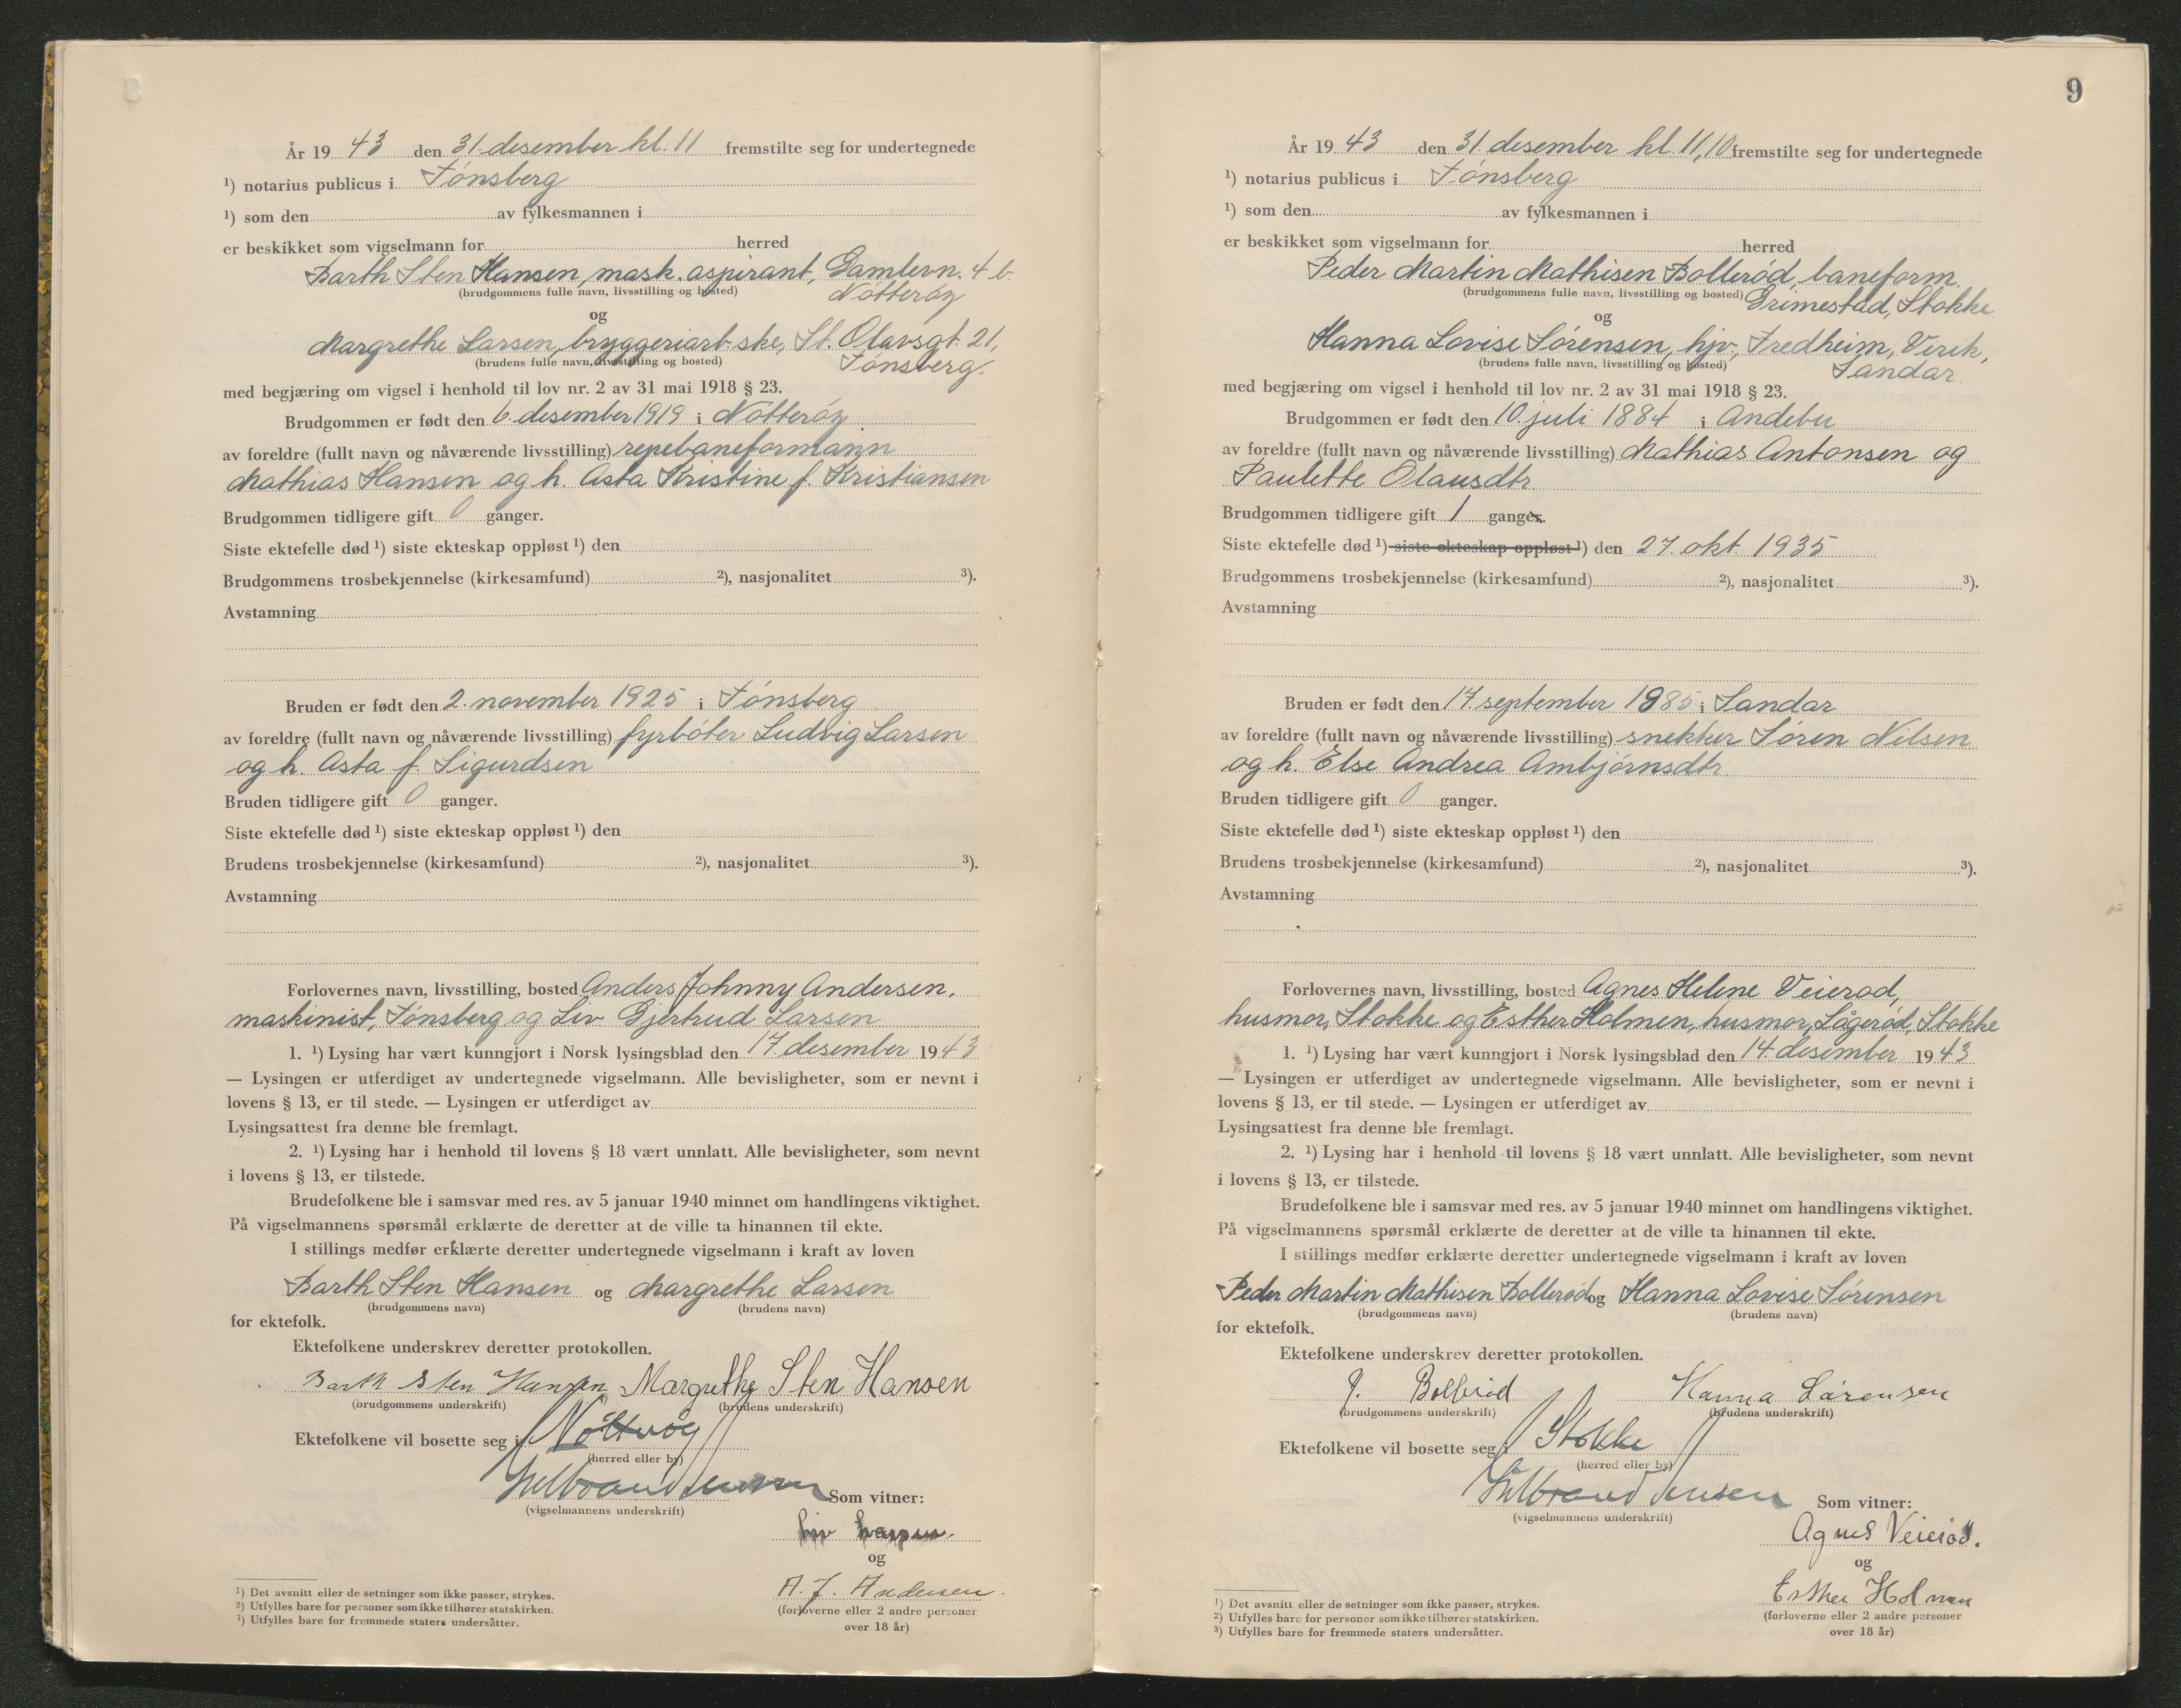 År 19 43 den 31. desember kl. 11 fremstilte seg for undertegnede
¹) notarius publicus i Tónsberg
¹) som den av fylkesmannen i
er beskikket som vigselmann for herred
Barth Sten Hansen, mask. aspirant, Gamlevn. 4 b.
(brudgommens fulle navn, livsstilling og bosted) Nótteróy
og
Margrethe Larsen, bryggeriarb.ske, St. Olavsgt. 21,
(brudens fulle navn, livsstilling og bosted) Tónsberg.
med begjæring om vigsel i henhold til lov nr. 2 av 31 mai 1918 § 23.
Brudgommen er født den 6. desember 1919 i Nótteróy
av foreldre (fullt navn og nåværende livsstilling) repebaneformann
Mathias Hansen og h. Asta Kristine f. Kristiansen
Brudgommen tidligere gift 0 ganger.
Siste ektefelle død ¹) siste ekteskap oppløst ¹) den
Brudgommens trosbekjennelse (kirkesamfund) ²), nasjonalitet ³).
Avstamning
Bruden er født den 2. november 1925 i Tónsberg
av foreldre (fullt navn og nåværende livsstilling) fyrbóter Ludvig Larsen
og h. Asta f. Sigurdsen
Bruden tidligere gift 0 ganger.
Siste ektefelle død ¹) siste ekteskap oppløst ¹) den
Brudens trosbekjennelse (kirkesamfund) ²), nasjonalitet ³).
Avstamning
Forlovernes navn, livsstilling, bosted Anders Johnny Andersen,
maskinist, Tónsberg og Liv Gjertrud Larsen
1. ¹) Lysing har vært kunngjort i Norsk lysingsblad den 17 desember 19 43
— Lysingen er utferdiget av undertegnede vigselmann. Alle bevisligheter, som er nevnt i
lovens § 13, er til stede. — Lysingen er utferdiget av
Lysingsattest fra denne ble fremlagt.
2. ¹) Lysing har i henhold til lovens § 18 vært unnlatt. Alle bevisligheter, som nevnt
i lovens § 13, er tilstede.
Brudefolkene ble i samsvar med res. av 5 januar 1940 minnet om handlingens viktighet.
På vigselmannens spørsmål erklærte de deretter at de ville ta hinannen til ekte.
I stillings medfør erklærte deretter undertegnede vigselmann i kraft av loven
Barth Sten Hansen og Margrethe Larsen
(brudgommens navn) (brudens navn)
for ektefolk.
Ektefolkene underskrev deretter protokollen.
Barth Sten Hansen Margrethe Sten Hansen
(brudgommens underskrift) (brudens underskrift)
Ektefolkene vil bosette seg i Nótterøy
(herred eller by)
(vigselmannens underskrift) Som vitner:
Liv Larsen
og
A. J. Andersen
(forloverne eller 2 andre personer
over 18 år)
¹) Det avsnitt eller de setninger som ikke passer, strykes.
²) Utfylles bare for personer som ikke tilhører statskirken.
³) Utfylles bare for fremmede staters undersåtter.
9
År 19 43 den 31 desember kl. 11,10 fremstilte seg for undertegnede
¹) notarius publicus i Tónsberg
¹) som den av fylkesmannen i
er beskikket som vigselmann for herred
Peder Martin Mathisen Bollerød, baneform.
(brudgommens fulle navn, livsstilling og bosted) Grimestad, Stokke
og
Hanna Lovise Sórensen, hjv., Fredheim, Virik,
(brudens fulle navn, livsstilling og bosted) Sandar.
med begjæring om vigsel i henhold til lov nr. 2 av 31 mai 1918 § 23.
Brudgommen er født den 10. juli 1884 i Andebu
av foreldre (fullt navn og nåværende livsstilling) Mathias Antonsen og
Paulette Olausdtr.
Brudgommen tidligere gift 1 ganger.
Siste ektefelle død ¹) siste ekteskap oppløst ¹) den 27. okt. 1935
Brudgommens trosbekjennelse (kirkesamfund) ²), nasjonalitet ³).
Avstamning
Bruden er født den 17 september 1885 i Sandar
av foreldre (fullt navn og nåværende livsstilling) snekker Sóren Nilsen
og h. Else Andrea Ambjórnsdtr.
Bruden tidligere gift 0 ganger.
Siste ektefelle død ¹) siste ekteskap oppløst ¹) den
Brudens trosbekjennelse (kirkesamfund) ²), nasjonalitet ³).
Avstamning
Forlovernes navn, livsstilling, bosted Agnes Helene Veierød,
husmor, Stokke og Esther Holmen, husmor, Lågerød, Stokke
1. ¹) Lysing har vært kunngjort i Norsk lysingsblad den 14. desember 19 43
— Lysingen er utferdiget av undertegnede vigselmann. Alle bevisligheter, som er nevnt i
lovens § 13, er til stede. — Lysingen er utferdiget av
Lysingsattest fra denne ble fremlagt.
2. ¹) Lysing har i henhold til lovens § 18 vært unnlatt. Alle bevisligheter, som nevnt
i lovens § 13, er tilstede.
Brudefolkene ble i samsvar med res. av 5 januar 1940 minnet om handlingens viktighet.
På vigselmannens spørsmål erklærte de deretter at de ville ta hinannen til ekte.
I stillings medfør erklærte deretter undertegnede vigselmann i kraft av loven
Peder Martin Mathisen Bollerød og Hanna Lovise Sórensen
(brudgommens navn) (brudens navn)
for ektefolk.
Ektefolkene underskrev deretter protokollen.
P. Bollerød Hanna Sórensen
(brudgommens underskrift) (brudens underskrift)
Ektefolkene vil bosette seg i Stokke
(herred eller by)
(vigselmannens underskrift) Som vitner:
Agnes Veierød.
og
Esther Holmen
(forloverne eller 2 andre personer
over 18 år)
¹) Det avsnitt eller de setninger som ikke passer, strykes.
²) Utfylles bare for personer som ikke tilhører statskirken.
³) Utfylles bare for fremmede staters undersåtter.